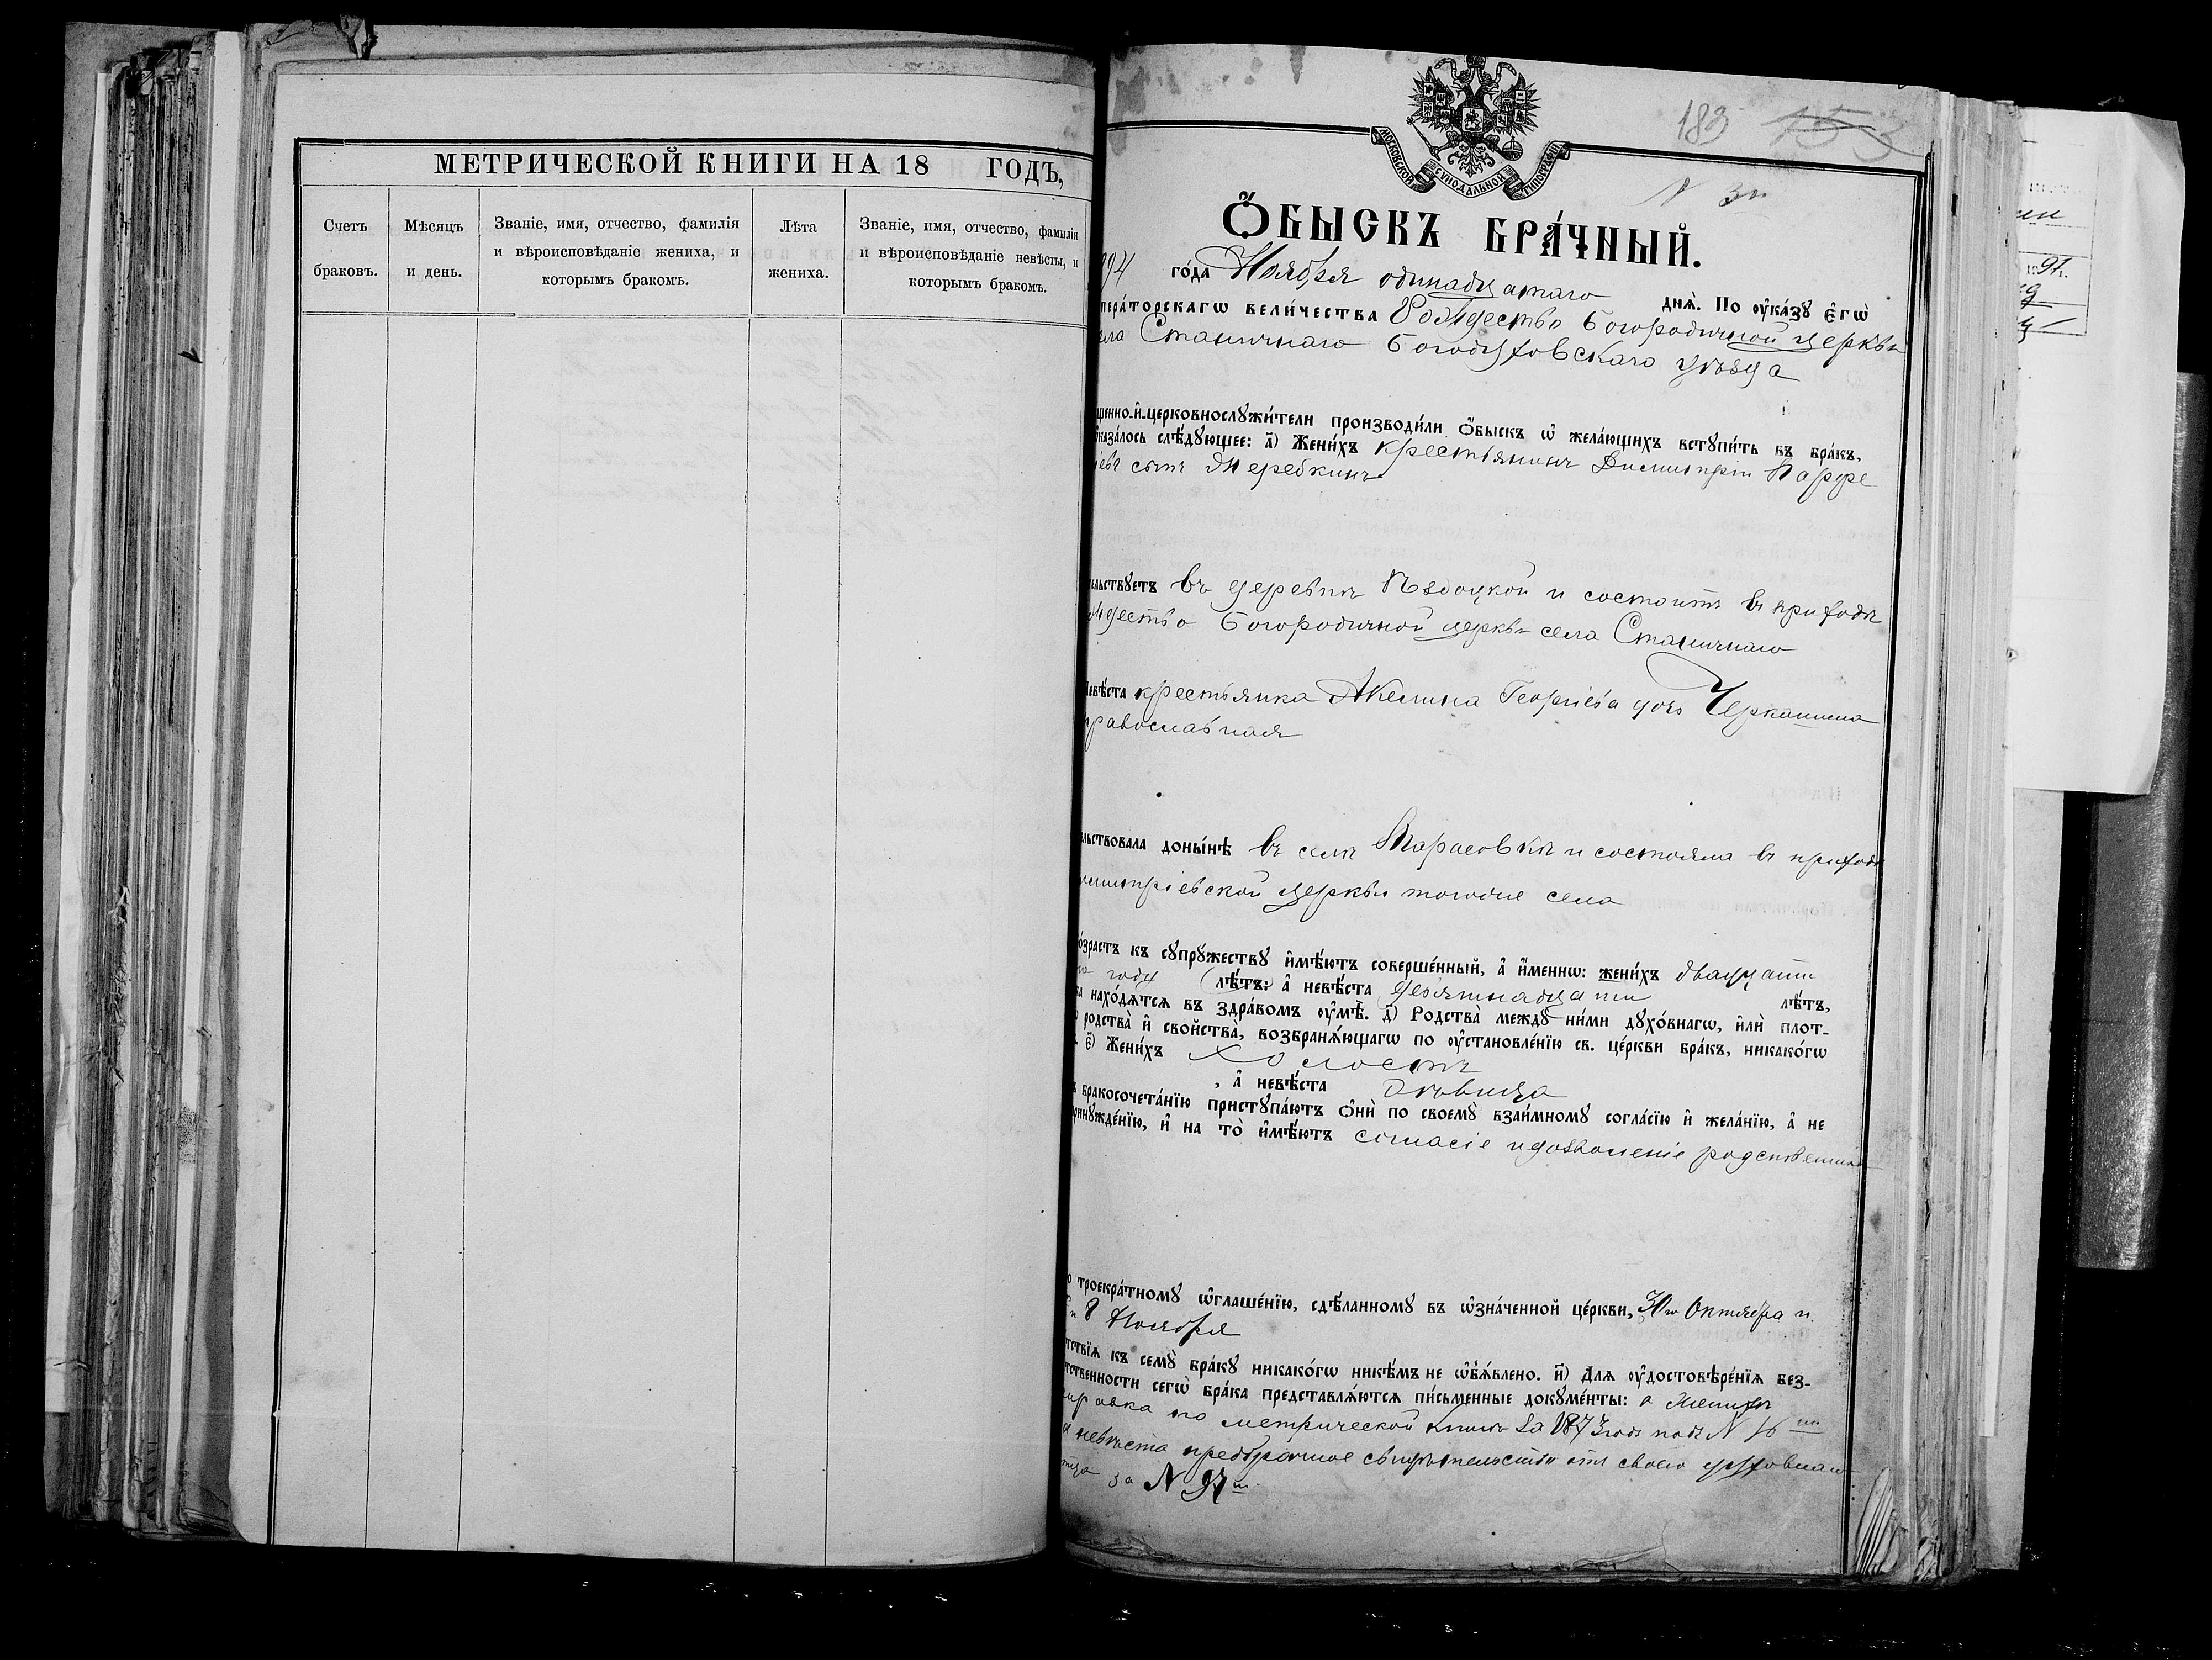 МЕТРИЧЕСКОЙ КНИГИ НА 18 ГОДЪ,
Счетъ браковъ.
Мѣсяцъ и день.
Званіе, имя, отчество, фамилія и вѣроисповѣданіе жениха, и которымъ бракомъ.
Лѣта жениха.
Званіе, имя, отчество, фамилія и вѣроисповѣданіе невѣсты, и которымъ бракомъ.
МОСКОВСКОЙ СУНОДАЛЬНОЙ ТИПОГРАФІИ
183 153
N
ОБЫСКЪ БРАЧНЫЙ.
94 года Ноября одинадцатаго дня. По указу Его
ператорскаго величества Рождество Богородичной церкви
ела Станичнаго Богодуховскаго уѣзда
щенно-и-церковнослужители производили обыскъ ѡ желающихъ вступить въ бракъ,
оказалось слѣдующее: а) Женихъ крестьянинъ Димитрій Парфе
іевъ сынъ Жеребкинъ
ельствуетъ въ деревнѣ и состоитъ въ приходѣ
ждество Богородичной церкви села Станичнаго
Невѣста крестьянка Акилина Георгіева дочь Черкашина
православная
ельствовала донынѣ въ селѣ Тарасовкѣ и состояла въ приходѣ
имитріевской церкви тогоже села
озрастъ къ супружеству имѣютъ совершенный, а именно: женихъ двадцати
году (лѣтъ:) а невѣста девятнадцати лѣтъ,
ба находятся въ здравомъ умѣ. д) Родства между ними духовнагѡ, или плот-
родства и свойства, возбраняющагѡ по установленію св. церкви бракъ, никакогѡ
є) Женихъ холостъ
, а невѣста дѣвица
бракосочетанію приступаютъ ѻни по своему взаимному согласію и желанію, а не
ринужденію, и на то имѣютъ согласіе и дозволеніе родственник
о троекратному ѡглашенію, сдѣланному въ ѡзначенной церкви, 30го Октября и
и 8 Ноября
тствія къ сему браку никакогѡ никѣмъ не ѡбъявлено. и) Для удостовѣренія без-
тственности сегѡ брака представляются письменные документы: о женихѣ
справка по метрической книгѣ за 1873 годъ подъ N 16
а невѣста предбрачное свидѣтельство отъ своего духовнаго
тца за N 97м